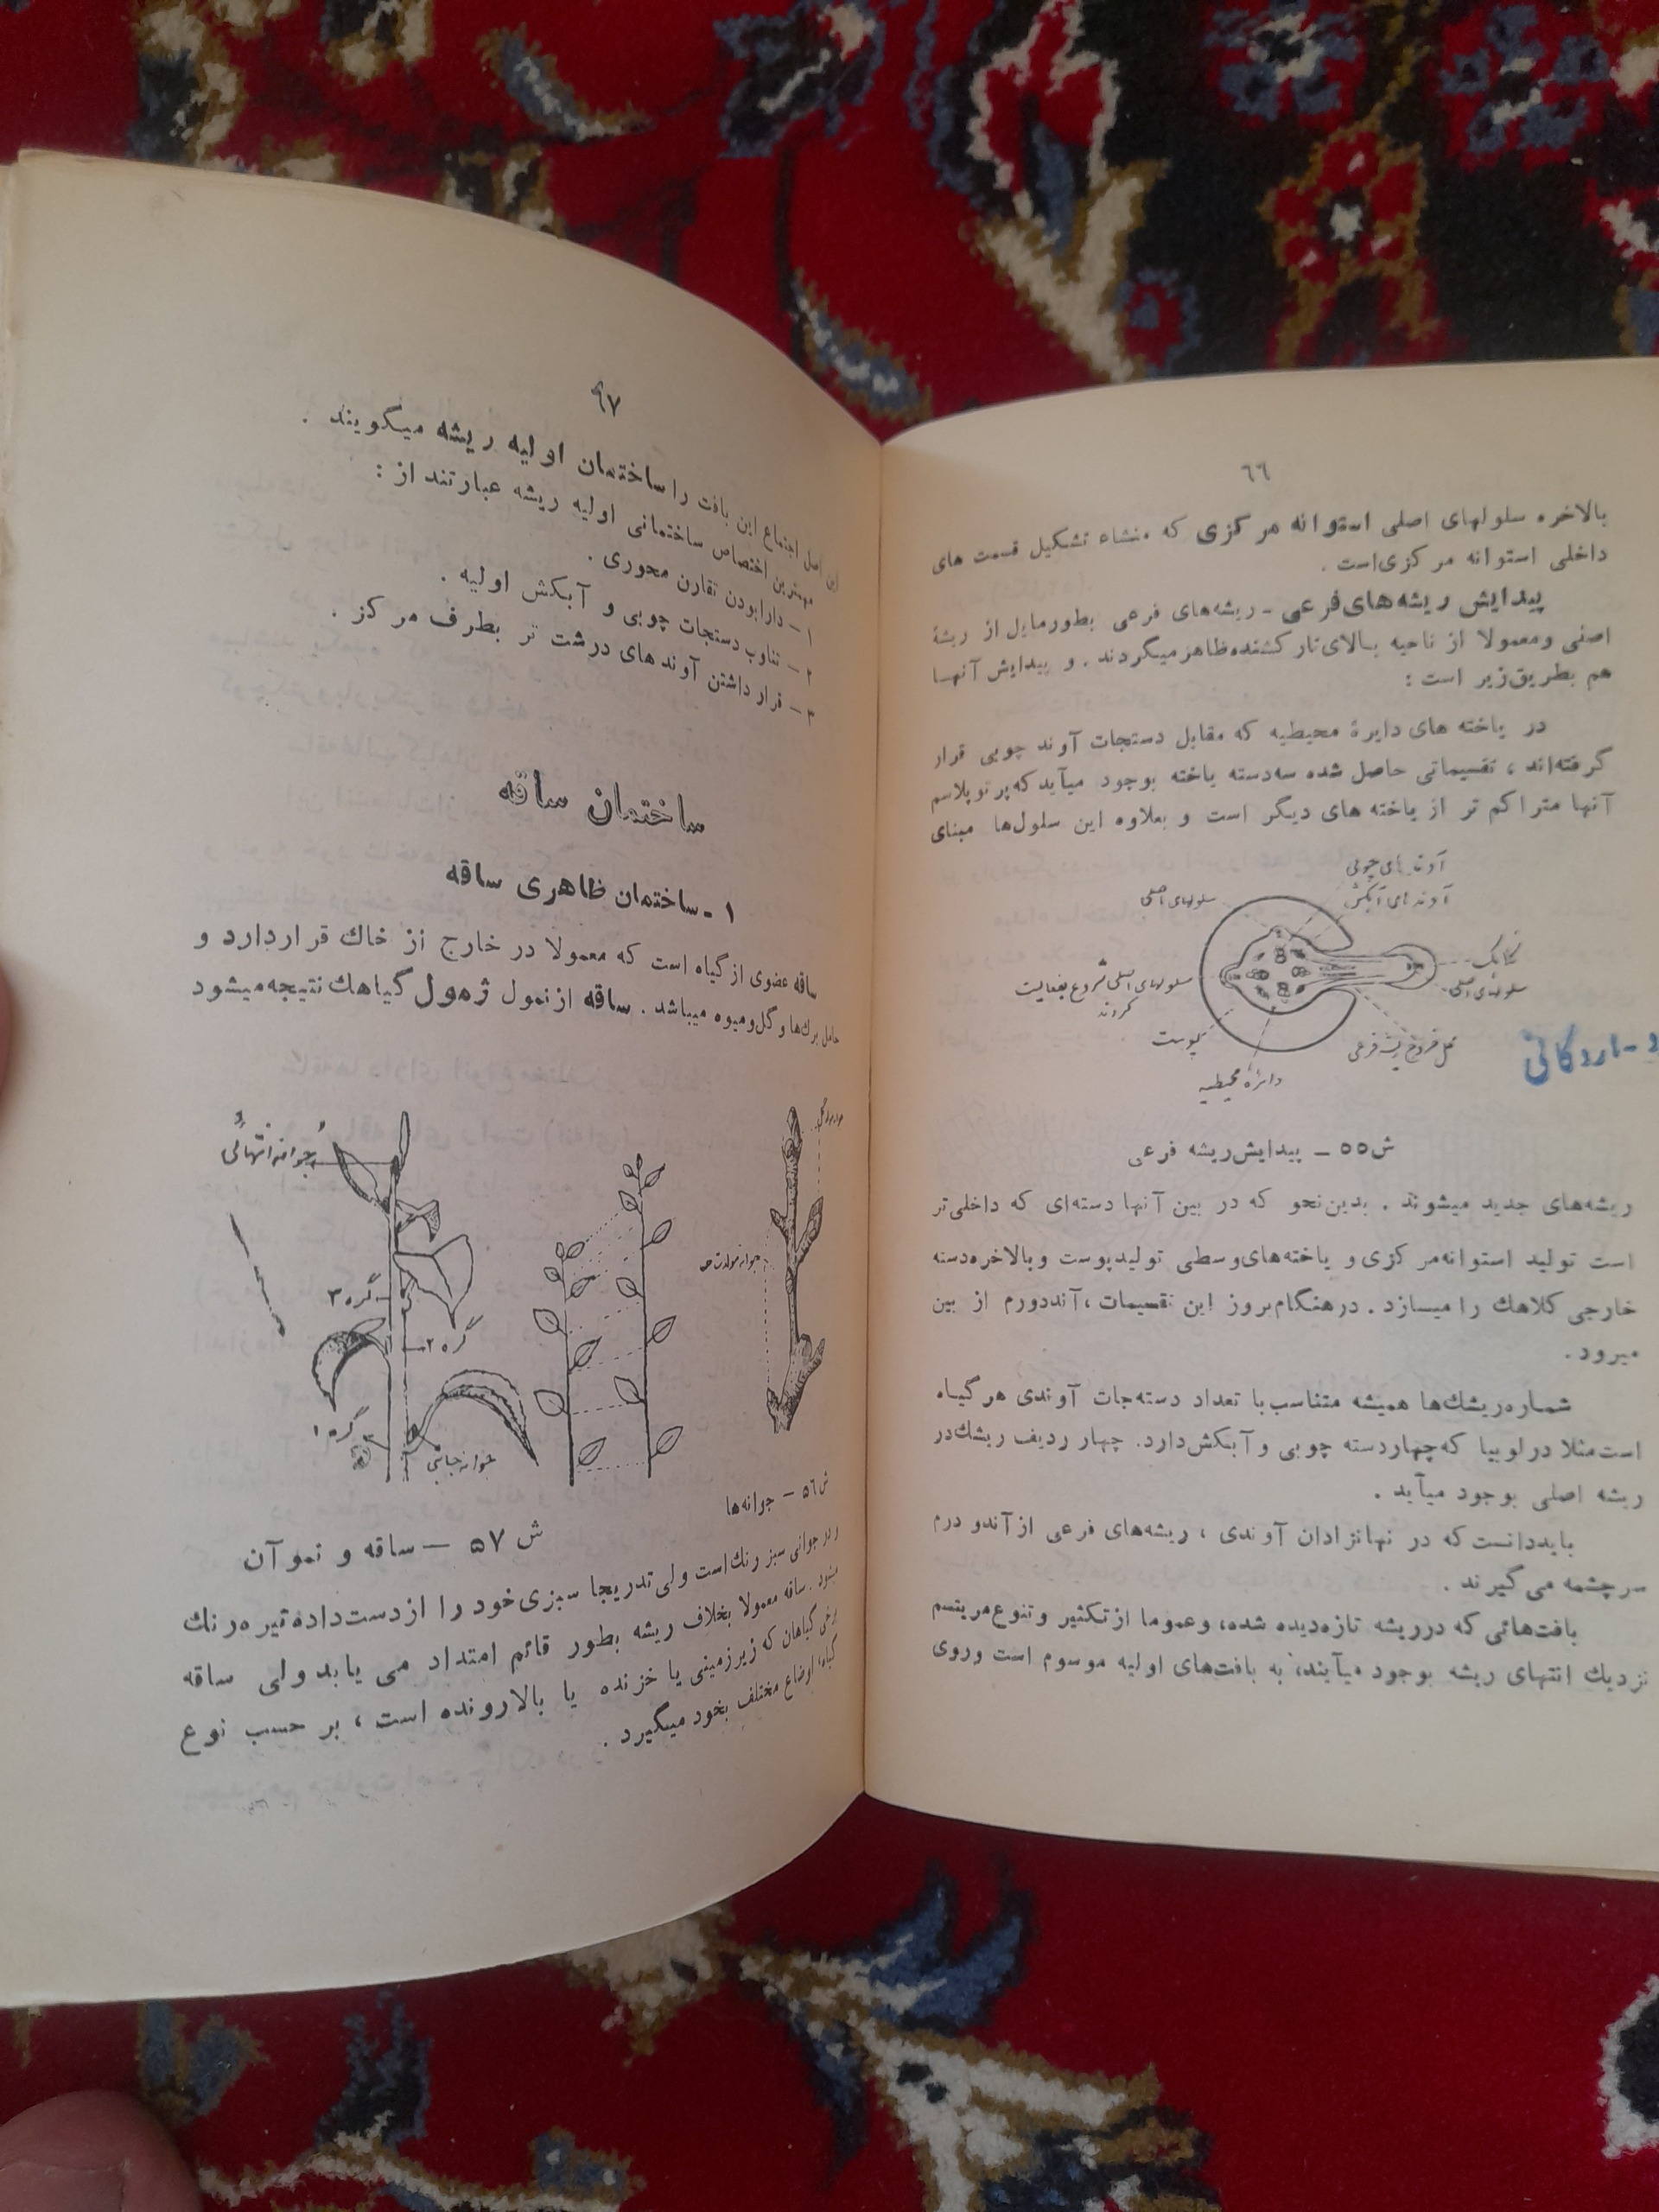 ۶۶
بالاخره سلولهای اصلی استوانه مرکزی که منشاء تشکیل قسمت های
داخلی استوانه مرکزی‌است .
پیدایش ریشه‌های‌فرعی - ریشه‌های فرعی بطورمایل از ریشهٔ
اصلی ومعمولا از ناحیه بالای‌تارکشنده‌ظاهرمیگردند . و پیدایش آنها
هم بطریق‌زیر است :
در یاخته های دایرهٔ محیطیه که مقابل دستجات آوند چوبی قرار
گرفته‌اند ، تقسیماتی حاصل شده سه‌دسته یاخته بوجود میآید که‌پرتوپلاسم
آنها متراکم تر از یاخته های دیگر است و بعلاوه این سلول‌ها مبنای
آوندهای چوبی
آوندهای آبکش
سلولهای اصلی
کلاهک
سلولهای اصلی
سلولهای اصلی شروع بفعالیت
کردند
پوست
دایرهٔ محیطیه
محل خروج ریشه فرعی
د - اردکانی
ش۵۵ – پیدایش‌ریشه فرعی
ریشه‌های جدید میشوند . بدین‌نحو که در بین آنها دسته‌ای که داخلی‌تر
است تولید استوانه‌مرکزی و یاخته‌های‌وسطی تولیدپوست وبالاخره‌دسته
خارجی کلاهك را میسازد . درهنگام‌بروز این تقسیمات ، آندودرم از بین
میرود .
شماره‌ریشك‌ها همیشه متناسب با تعداد دسته‌جات آوندی هرگیاه
است‌مثلا درلوبیا که‌چهاردسته چوبی وآبکش‌دارد. چهار ردیف ریشك‌در
ریشه اصلی بوجود میآید .
بایددانست‌که در نهانزادان آوندی ، ریشه‌های فرعی ازآندو درم
سرچشمه می‌گیرند .
بافت‌هائی که درریشه تازه‌دیده شده، وعموما ازتکثیر وتنوع‌مریتسم
نزدیك انتهای ریشه بوجود میآیند، به بافت‌های اولیه موسوم است وروی
۶۷
این اصل اجتماع این بافت را ساختمان اولیه ریشه میگویند .
مهمترین اختصاص ساختمانی اولیه ریشه عبارتند از :
۱ – دارابودن تقارن محوری .
۲ – تناوب دستجات چوبی و آبکش اولیه .
۳ – قرار داشتن آوند های درشت تر بطرف مرکز .
ساختمان ساقه
۱ ـ ساختمان ظاهری ساقه
ساقه عضوی ازگیاه است که معمولا در خارج از خاك قراردارد و
حامل برك‌ها وگل‌ومیوه میباشد . ساقه ازنمول ژمول گیاهك نتیجه‌میشود
جوانه انتهائی
گره ۳
گره ۲
گره ۱
جوانه جانبی
ش۵۶ – جوانه‌ها
ش ۵۷ – ساقه و نمو آن
و در جوانی سبز رنك‌است ولی تدریجا سبزی‌خود را ازدست‌داده‌تیره‌رنك
میشود . ساقه معمولا بخلاف ریشه بطور قائم امتداد می یابد ولی ساقه
برخی گیاهان که زیرزمینی یا خزنده یا بالارونده است ، بر حسب نوع
گیاه، اوضاع مختلف بخود میگیرد .